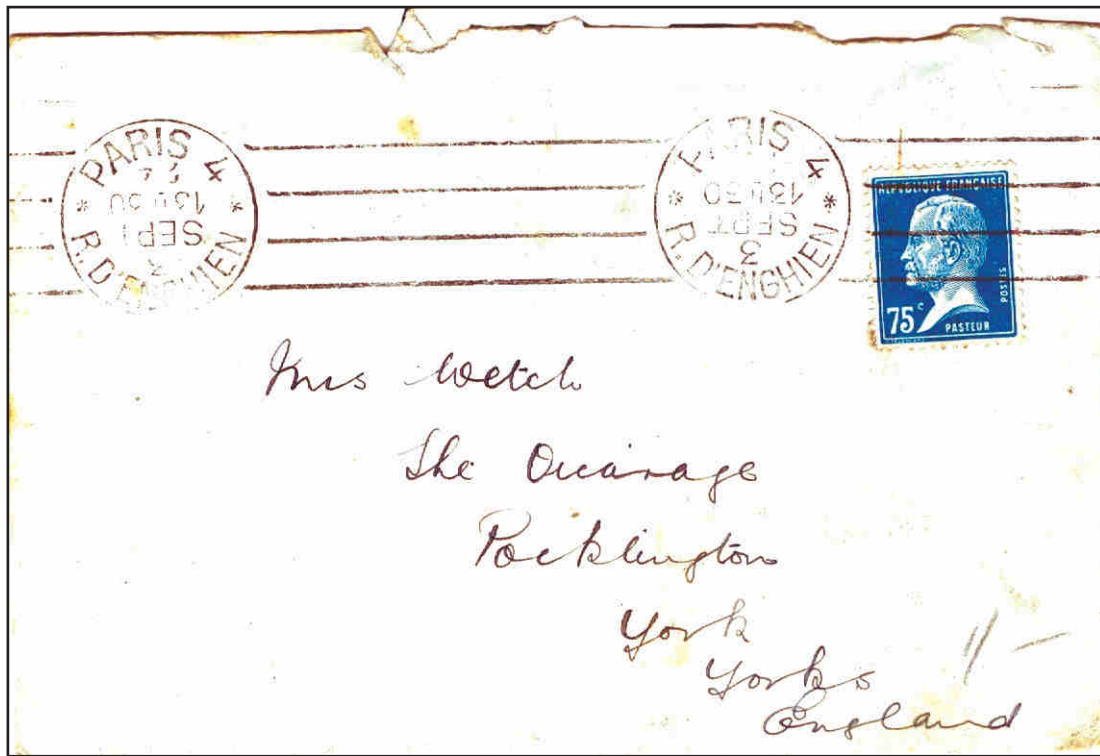 PARIS 4
13H30
SEPT
3
* R. D'ENGHIEN *
PARIS 4
13H30
SEPT
3
* R. D'ENGHIEN *
REPUBLIQUE FRANÇAISE
POSTES
75c PASTEUR
Mrs Wetch
The Vicarage
Pocklington
York
Yorks
England
1/-